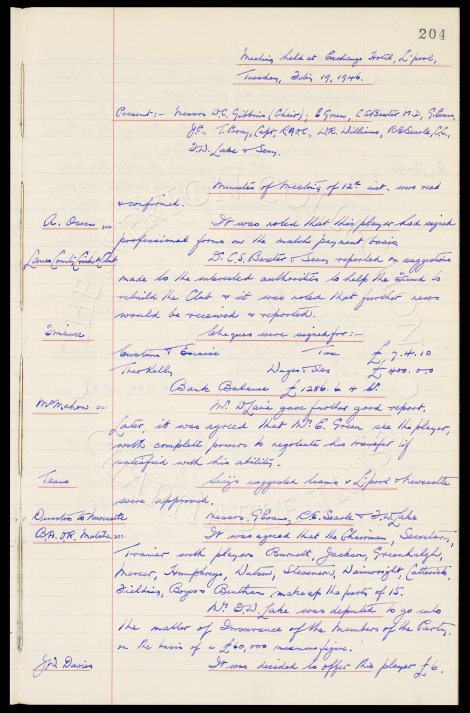 204
Meeting held at Exchange Hotel, L'pool,
Tuesday, Feby 19, 1946.
Present:- Messrs W.C. Gibbins (Chair); E Green, C.S. Baxter M.D., G. Evans,
J.P., T. Percy, Capt. R.A.M.C., W.R. Williams, R.E. Searle, C.C.,
F.W. Lake & Secy.
Minutes of Meeting of 12th inst. were read
& confirmed.
A. Owens
It was noted that this player had signed
professional forms on the match payment basis.
Lancs County Cricket Club
Dr. C.S. Baxter & Secy reported on suggestions
made to the interested authorities to help the Fund to
rebuild the Club & it was noted that further news
would be received & reported.
Finance
Cheques were signed for:-
Customs & Excise Tax £ 7.4.10
Theo Kelly Wages & £ 400.0.0
Bank Balance £1286. 6. 4
McMahon
Mr. gave further good report.
Later, it was agreed that Mr. E. Green see the player,
with complete powers to negotiate his transfer if
satisfied with his ability.
Teams
suggested teams v L'pool & Newcastle
were approved.
Director to Newcastle
Messrs. G. Evans, R.E. Searle & F.W. Lake
B.A.O.R. Match
It was agreed that the Chairman, Secretary,
Trainer with players Burnett, Jackson, Greenhalgh,
Mercer, Humphreys, Watson, Stevenson, Wainwright, Catterick,
Fielding, Boyes & Bentham make up the party of 15.
Mr. F.W. Lake was deputed to go into
the matter of Insurance of the Members of the Party
on the basis of a £60,000 maximum figure.
J.W. Davies
It was decided to offer this player £6.